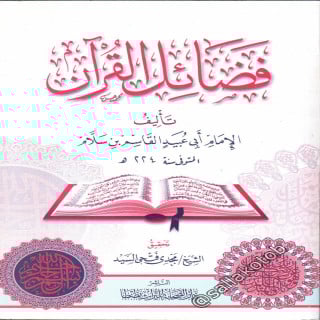 فضائل القرآن
تأليف
الإمام أبي عبيد القاسم بن سلام
المتوفى سنة ٢٢٤ هـ
تحقيق
الشيخ / مجدي فتحي السيد
الناشر
دار الصحابة للتراث بطنطا
@sallakotob